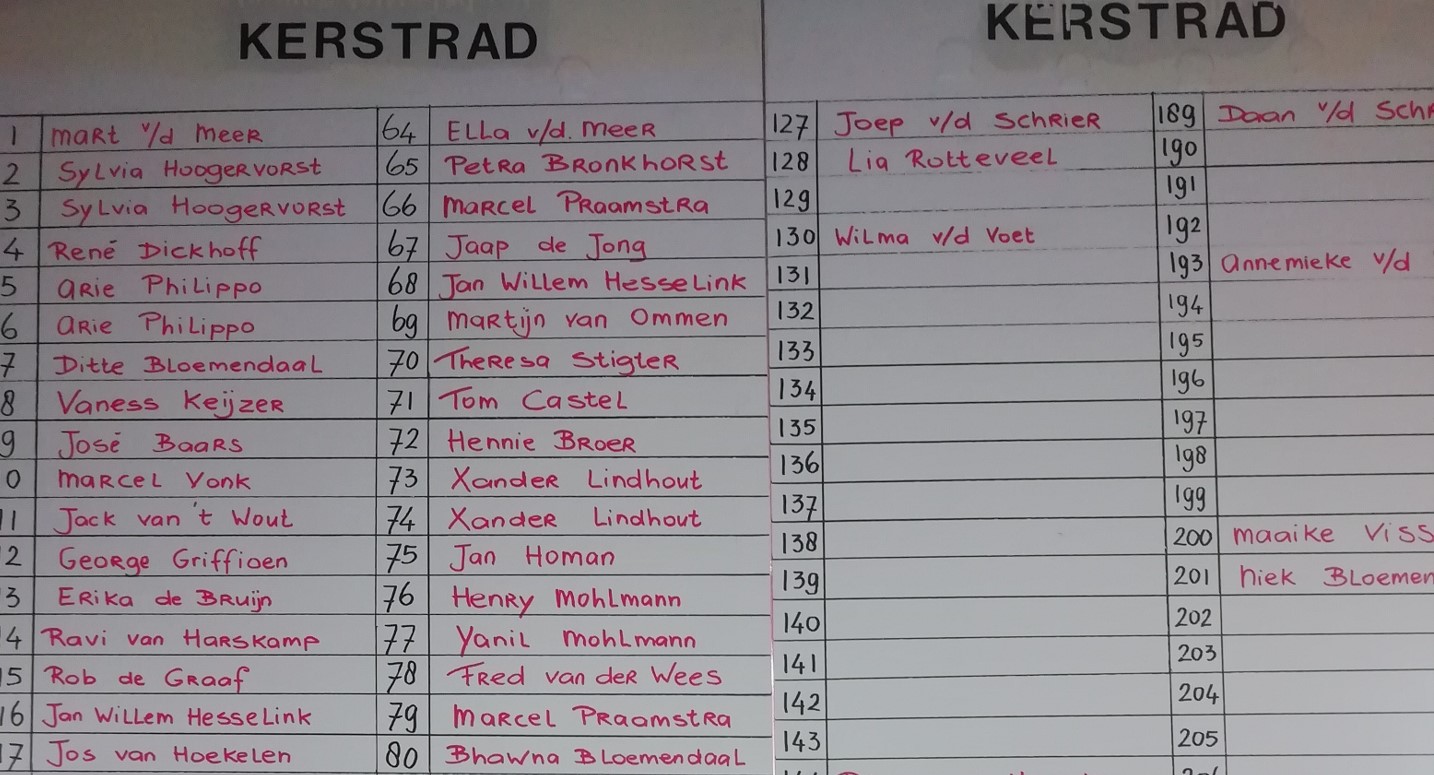 KERSTRAD
1 MaRt v/d MeeR 64 ELLa v/d. MeeR
2 SyLvia HoogeRvoRst 65 PetRa BRonkhoRst
3 SyLvia HoogeRvoRst 66 MaRceL PRaamstRa
4 René Dickhoff 67 Jaap de Jong
5 aRie PhiLippo 68 Jan WiLLem HesseLink
6 aRie PhiLippo 69 MaRtijn van Ommen
7 Ditte BLoemendaaL 70 TheResa StigleR
8 Vaness KeijzeR 71 Tom CasteL
9 José BaaRs 72 Hennie BRoeR
0 MaRceL Vonk 73 XandeR Lindhout
11 Jack van 't Wout 74 XandeR Lindhout
2 GeoRge GRiffioen 75 Jan Homan
3 ERika de BRuijn 76 HenRy MohLmann
4 Ravi van HaRskamp 77 YaniL MohLmann
5 Rob de GRaaf 78 FRed van deR Wees
16 Jan WiLLem HesseLink 79 MaRceL PRaamstRa
17 Jos van Hoekelen 80 Bhawna BLoemendaaL
KERSTRAD
127 Joep v/d SchRieR 189 Daan v/d
128 Lia RotteveeL 190
129 191
130 WiLma v/d Voet 192
131 193 annemieke v/d
132 194
133 195
134 196
135 197
136 198
137 199
138 200 maaike
139 201 niek
140 202
141 203
142 204
143 205